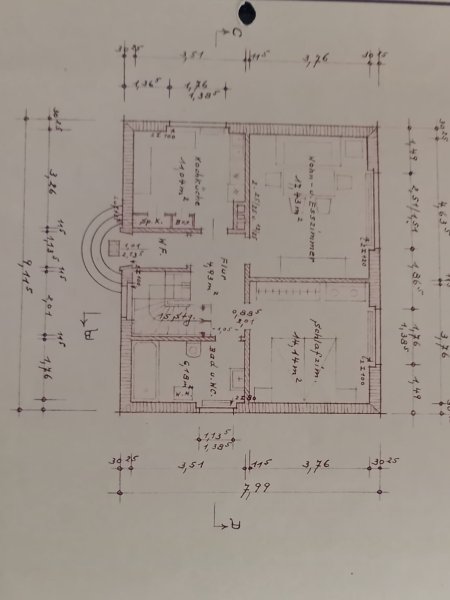 C
30 25
3,51
11⁵
3,76
30 25
1,36⁵
1,76
1,38⁵
Kochküche
11,04 m²
Wohn- u. Esszimmer
17,43 m²
Sp. K.
W.F.
1,01
Flur
4,93 m²
0,88⁵
2,01
15 Stg.
Schlafzim.
14,14 m²
Bad u. WC.
6,18 m²
9,11⁵
3,26
11⁵
1,13⁵
11⁵
2,01
11⁵
1,76
30 25
1,49
2,51/1,51
1,26⁵
1,76
1,38⁵
1,49
30 25
4,63⁵
3,76
B
1,13⁵
1,38⁵
30 25
3,51
11⁵
3,76
30 25
7,99
A